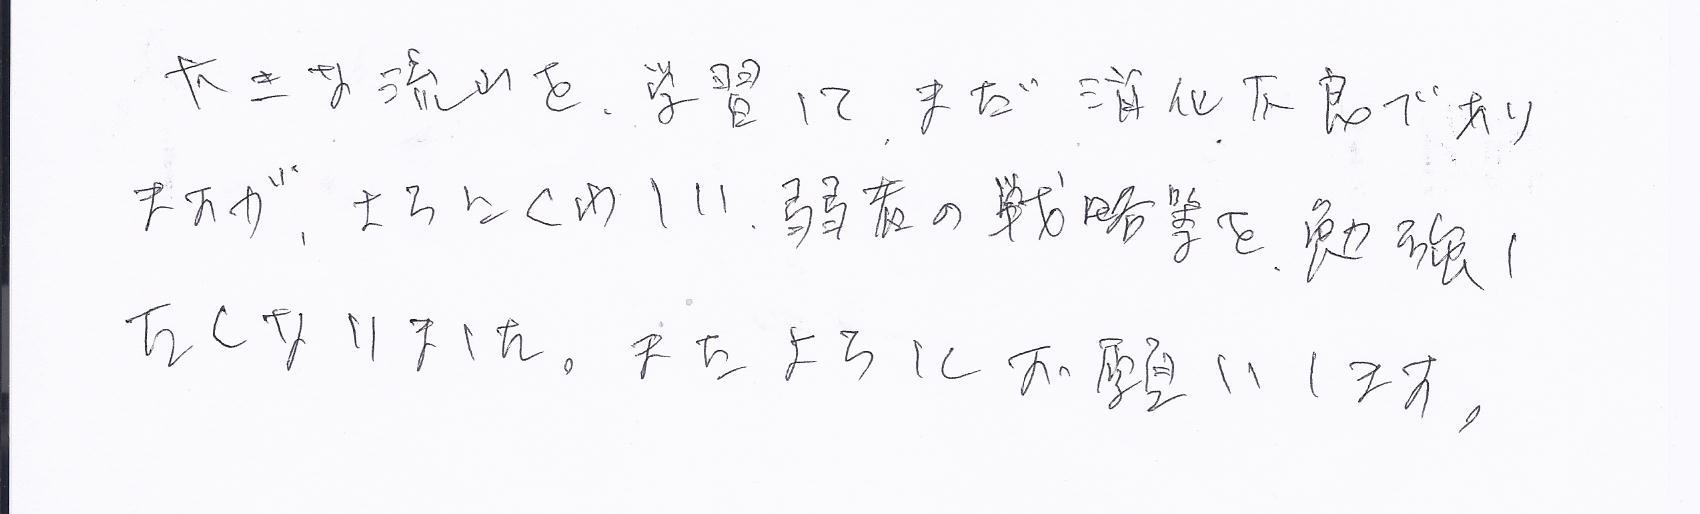 大きな流れを、学習して、まだ消化不良であり
ますが、さらにくわしい、弱者の戦略等を、勉強し
たくなりました。またよろしくお願いします。